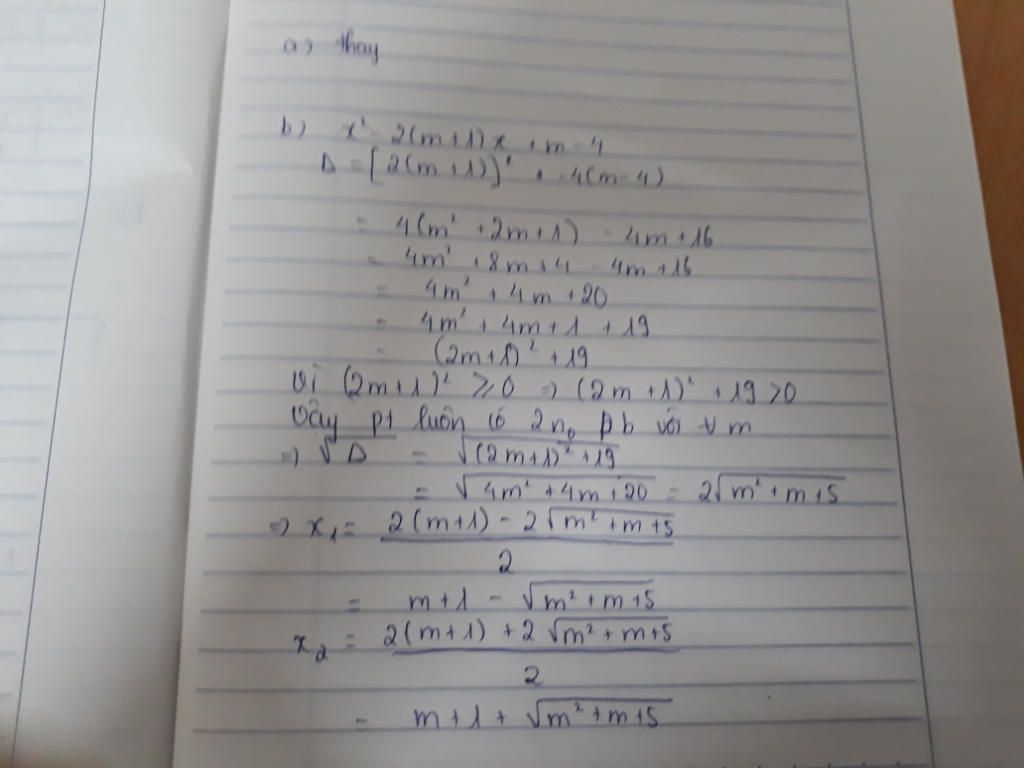 a) thay
b) x² - 2(m+1)x + m - 4
Δ = [2(m+1)]² + -4(m-4)
= 4(m² + 2m + 1) - 4m + 16
= 4m² + 8m + 4 - 4m + 16
= 4m² + 4m + 20
= 4m² + 4m + 1 + 19
= (2m+1)² + 19
Vì (2m+1)² ≥ 0 => (2m+1)² + 19 > 0
Vậy pt luôn có 2 n₀ pb với ∀ m
=> √Δ = √((2m+1)² + 19)
= √(4m² + 4m + 20) = 2√(m² + m + 5)
=> x₁ = 2(m+1) - 2√(m² + m + 5)
2
= m + 1 - √(m² + m + 5)
x₂ = 2(m+1) + 2√(m² + m + 5)
2
= m + 1 + √(m² + m + 5)